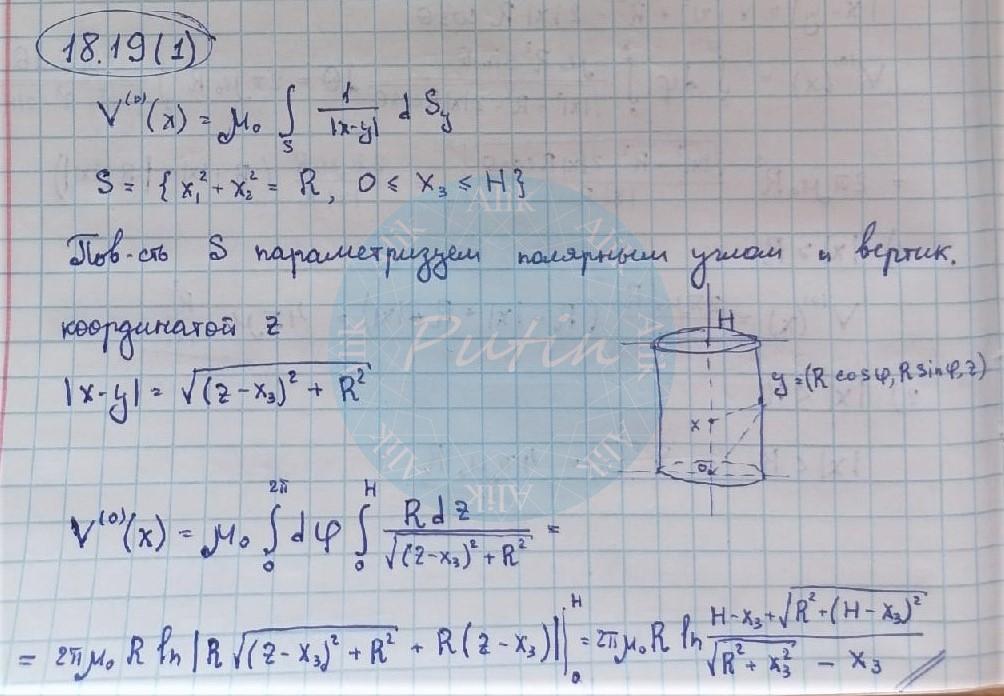 18.19(1)
V⁽⁰⁾(x) = μ₀ ∫_S 1/|x-y| d S_y
S = { x₁² + x₂² = R, 0 ≤ x₃ ≤ H }
Пов-сть S параметризуем полярным углом и вертик.
координатой z
|x-y| = √((z-x₃)² + R²)
H
y=(R cosφ, R sinφ, z)
x
0
V⁽⁰⁾(x) = μ₀ ∫₀^{2π} dφ ∫₀^H R dz / √((z-x₃)² + R²) =
= 2πμ₀ R ln |R √((z-x₃)² + R²) + R(z-x₃)| |₀^H = 2πμ₀R ln (H-x₃+√(R²+(H-x₃)²)) / (√(R²+x₃²) - x₃) //
Alik Alik Alik Alik Alik Alik Alik Alik
Putin